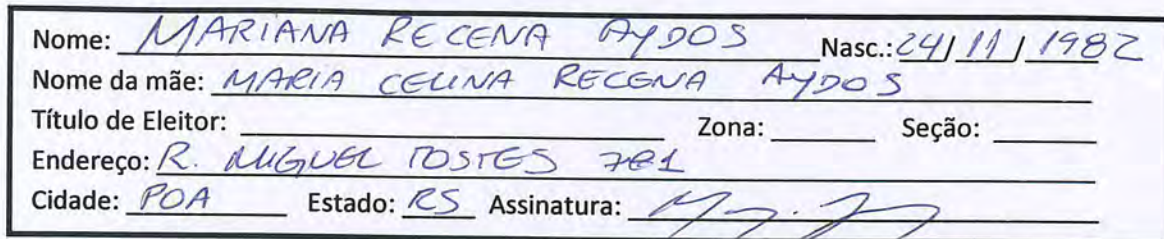 Nome: MARIANA RECENA AYDOS Nasc.: 24/11/1982
Nome da mãe: MARIA CELINA RECENA AYDOS
Título de Eleitor: Zona: Seção:
Endereço: R. MIGUEL TOSTES 781
Cidade: POA Estado: RS Assinatura: